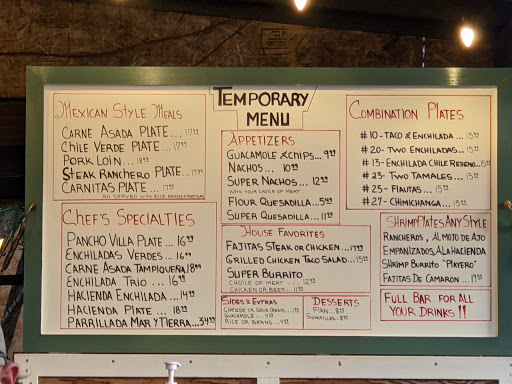 TEMPORARY
MENU
MEXICAN STYLE MEALS
CARNE ASADA PLATE... 17.99
CHILE VERDE PLATE ... 17.99
PORK LOIN... 18.99
STEAK RANCHERO PLATE... 17.99
CARNITAS PLATE ... 17.99
ALL SERVED WITH RICE, BEANS & TORTILLAS
CHEF'S SPECIALTIES
PANCHO VILLA PLATE ... 16.99
ENCHILADAS VERDES... 16.99
CARNE ASADA TAMPIQUEÑA 18.99
ENCHILADA TRIO ... 16.99
HACIENDA ENCHILADA ... 14.99
HACIENDA PLATE ... 18.99
PARRILLADA MAR Y TIERRA... 34.99
APPETIZERS
GUACAMOLE & CHIPS... 9.99
NACHOS ... 10.99
SUPER NACHOS ... 12.99
WITH YOUR CHOICE OF MEAT
FLOUR QUESADILLA... 5.49
SUPER QUESADILLA... 11.99
HOUSE FAVORITES
FAJITAS STEAK OR CHICKEN... 17.99
GRILLED CHICKEN TACO SALAD... 15.99
SUPER BURRITO
CHOICE OF MEAT ... 12.99
CHICKEN OR BEEF ... 11.99
SIDES & EXTRAS
CHEESE OR SOUR CREAM...
GUACAMOLE ...
RICE OR BEANS...
DESSERTS
FLAN...
COMBINATION PLATES
#10-TACO & ENCHILADA ... 15.99
#20- TWO ENCHILADAS ... 15.99
#13- ENCHILADA CHILE RELLENO... 15.99
#23- TWO TAMALES ... 15.99
#25- FLAUTAS ... 15.99
#27- CHIMICHANGA ... 15.99
SHRIMP PLATES ANY STYLE
RANCHEROS, AL MOJO DE AJO
EMPANIZADOS, A LA HACIENDA
SHRIMP BURRITO "PLAYERO"
FAJITAS DE CAMARON ... 19.99
FULL BAR FOR ALL
YOUR DRINKS!!